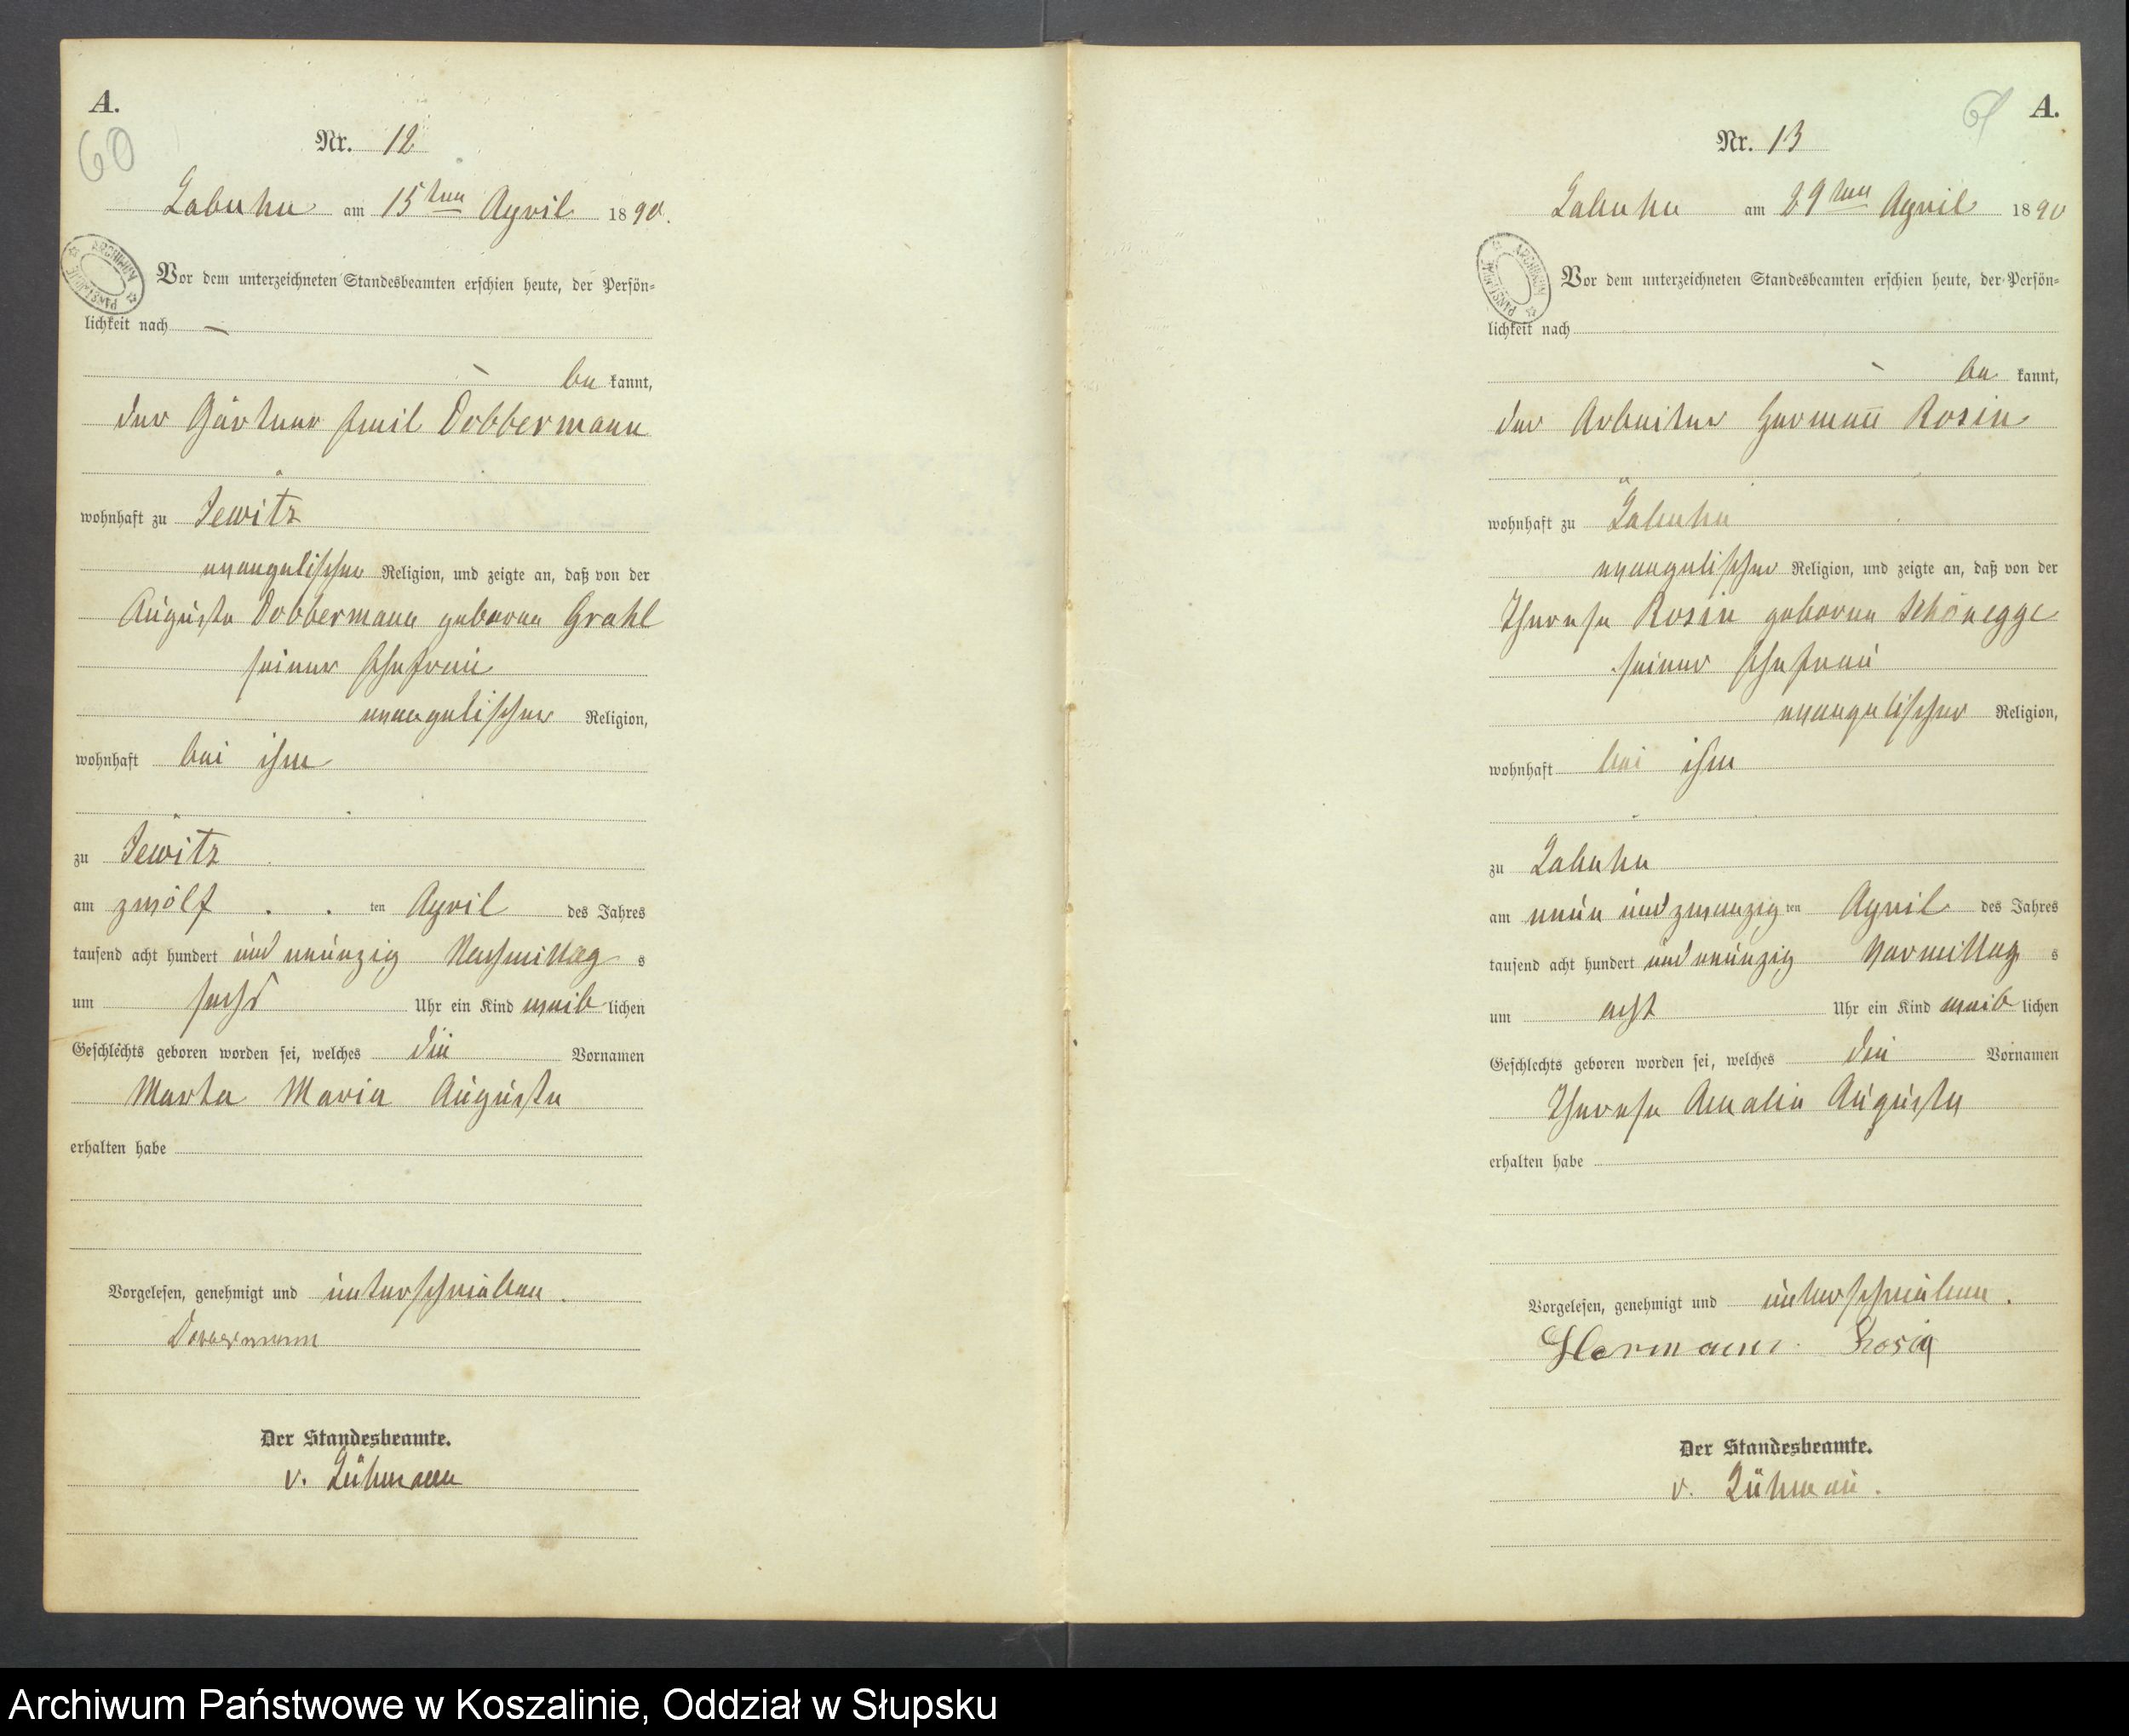 A.
60
Nr. 12
Labuhn am 15ten April 1890.
ARCHIWUM PAŃSTWOWE
Vor dem unterzeichneten Standesbeamten erschien heute, der Persön-
lichkeit nach —
be kannt,
der Gärtner Emil Dobbermann
wohnhaft zu Jewitz
evangelischer Religion, und zeigte an, daß von der
Auguste Dobbermann geborne Grahl
seiner Ehefrau
evangelischer Religion,
wohnhaft bei ihm
zu Jewitz
am zwölf ten April des Jahres
tausend acht hundert und neunzig Nachmittag s
um sechs Uhr ein Kind weib lichen
Geschlechts geboren worden sei, welches die Vornamen
Marta Maria Auguste
erhalten habe
Vorgelesen, genehmigt und unterschrieben.
Dobbermann
Der Standesbeamte.
v. Lühmann
A.
61
Nr. 13
Labuhn am 29ten April 1890
ARCHIWUM PAŃSTWOWE
Vor dem unterzeichneten Standesbeamten erschien heute, der Persön-
lichkeit nach
be kannt,
der Arbeiter Herman̄ Rosin
wohnhaft zu Labuhn
evangelischer Religion, und zeigte an, daß von der
Therese Rosin geborne Schönegge
seiner Ehefrau
evangelischer Religion,
wohnhaft bei ihm
zu Labuhn
am neun und zwanzig ten April des Jahres
tausend acht hundert und neunzig Vormittag s
um acht Uhr ein Kind weib lichen
Geschlechts geboren worden sei, welches die Vornamen
Therese Amalie Auguste
erhalten habe
Vorgelesen, genehmigt und unterschrieben.
Hermann Rosin
Der Standesbeamte.
v. Lühman̄.
Archiwum Państwowe w Koszalinie, Oddział w Słupsku